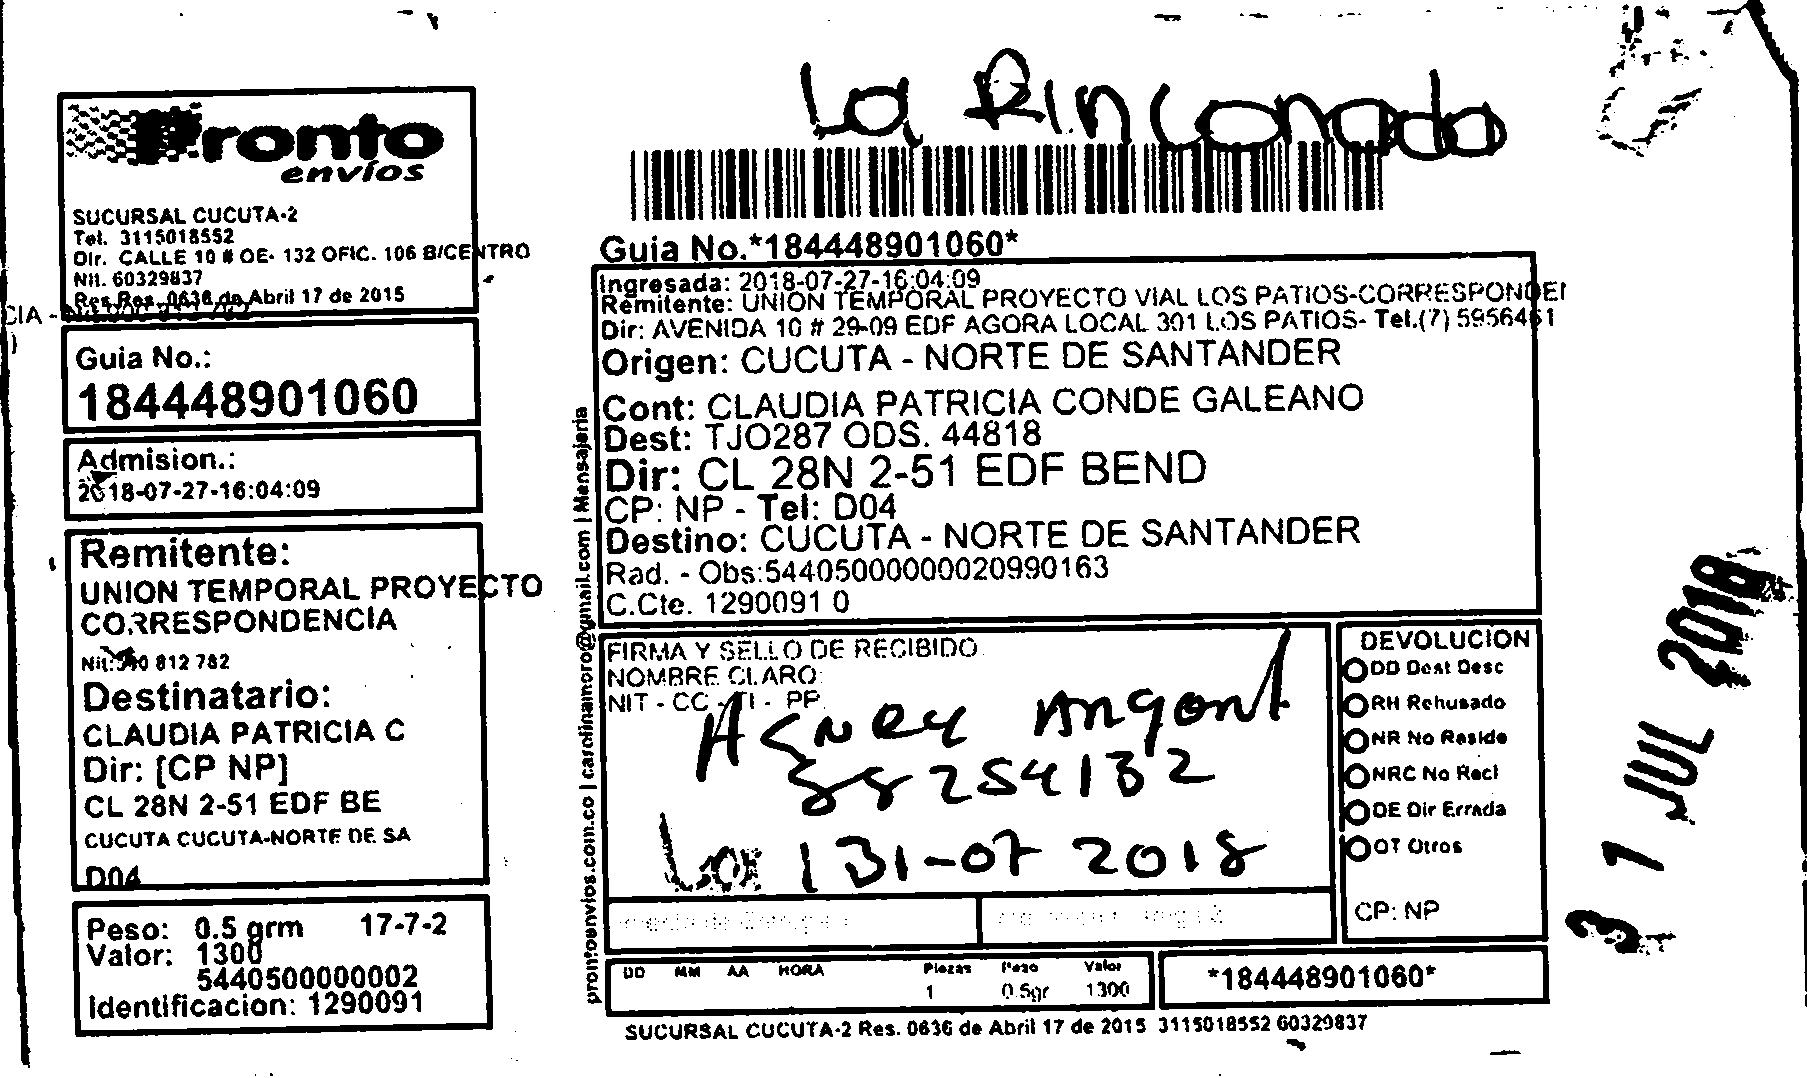 La Rinconada
Pronto
envíos
SUCURSAL CUCUTA-2
Tel. 3115018552
Dir. CALLE 10 # OE- 132 OFIC. 106 B/CENTRO
Nit. 60329837
Res.Res. 0636 de Abril 17 de 2015
CIA -
)
Guia No.:
184448901060
Admision.:
2018-07-27-16:04:09
Remitente:
UNION TEMPORAL PROYECTO
CORRESPONDENCIA
Nit: 812 782
Destinatario:
CLAUDIA PATRICIA C
Dir: [CP NP]
CL 28N 2-51 EDF BE
CUCUTA CUCUTA-NORTE DE SA
D04
Peso: 0.5 grm 17-7-2
Valor: 1300
5440500000002
Identificacion: 1290091
Guia No.*184448901060*
Ingresada: 2018-07-27-16:04:09
Remitente: UNION TEMPORAL PROYECTO VIAL LOS PATIOS-CORRESPONDEN
Dir: AVENIDA 10 # 29-09 EDF AGORA LOCAL 301 LOS PATIOS- Tel.(7) 5956461
Origen: CUCUTA - NORTE DE SANTANDER
Cont: CLAUDIA PATRICIA CONDE GALEANO
Dest: TJO287 ODS. 44818
Dir: CL 28N 2-51 EDF BEND
CP: NP - Tel: D04
Destino: CUCUTA - NORTE DE SANTANDER
Rad. - Obs:54405000000020990163
C.Cte. 1290091 0
prontoenvios.com.co | carolinamoro@gmail.com | Mensajeria
FIRMA Y SELLO DE RECIBIDO
NOMBRE CLARO:
NIT - CC - TI - PP.
31-07 2018
DEVOLUCION
DD Dest Desc
RH Rehusado
NR No Reside
NRC No Recl
DE Dir Errada
OT Otros
CP: NP
DD MM AA HORA Piezas Peso Valor
1 0.5gr 1300
*184448901060*
SUCURSAL CUCUTA-2 Res. 0636 de Abril 17 de 2015 3115018552 60329837
31 JUL 2018